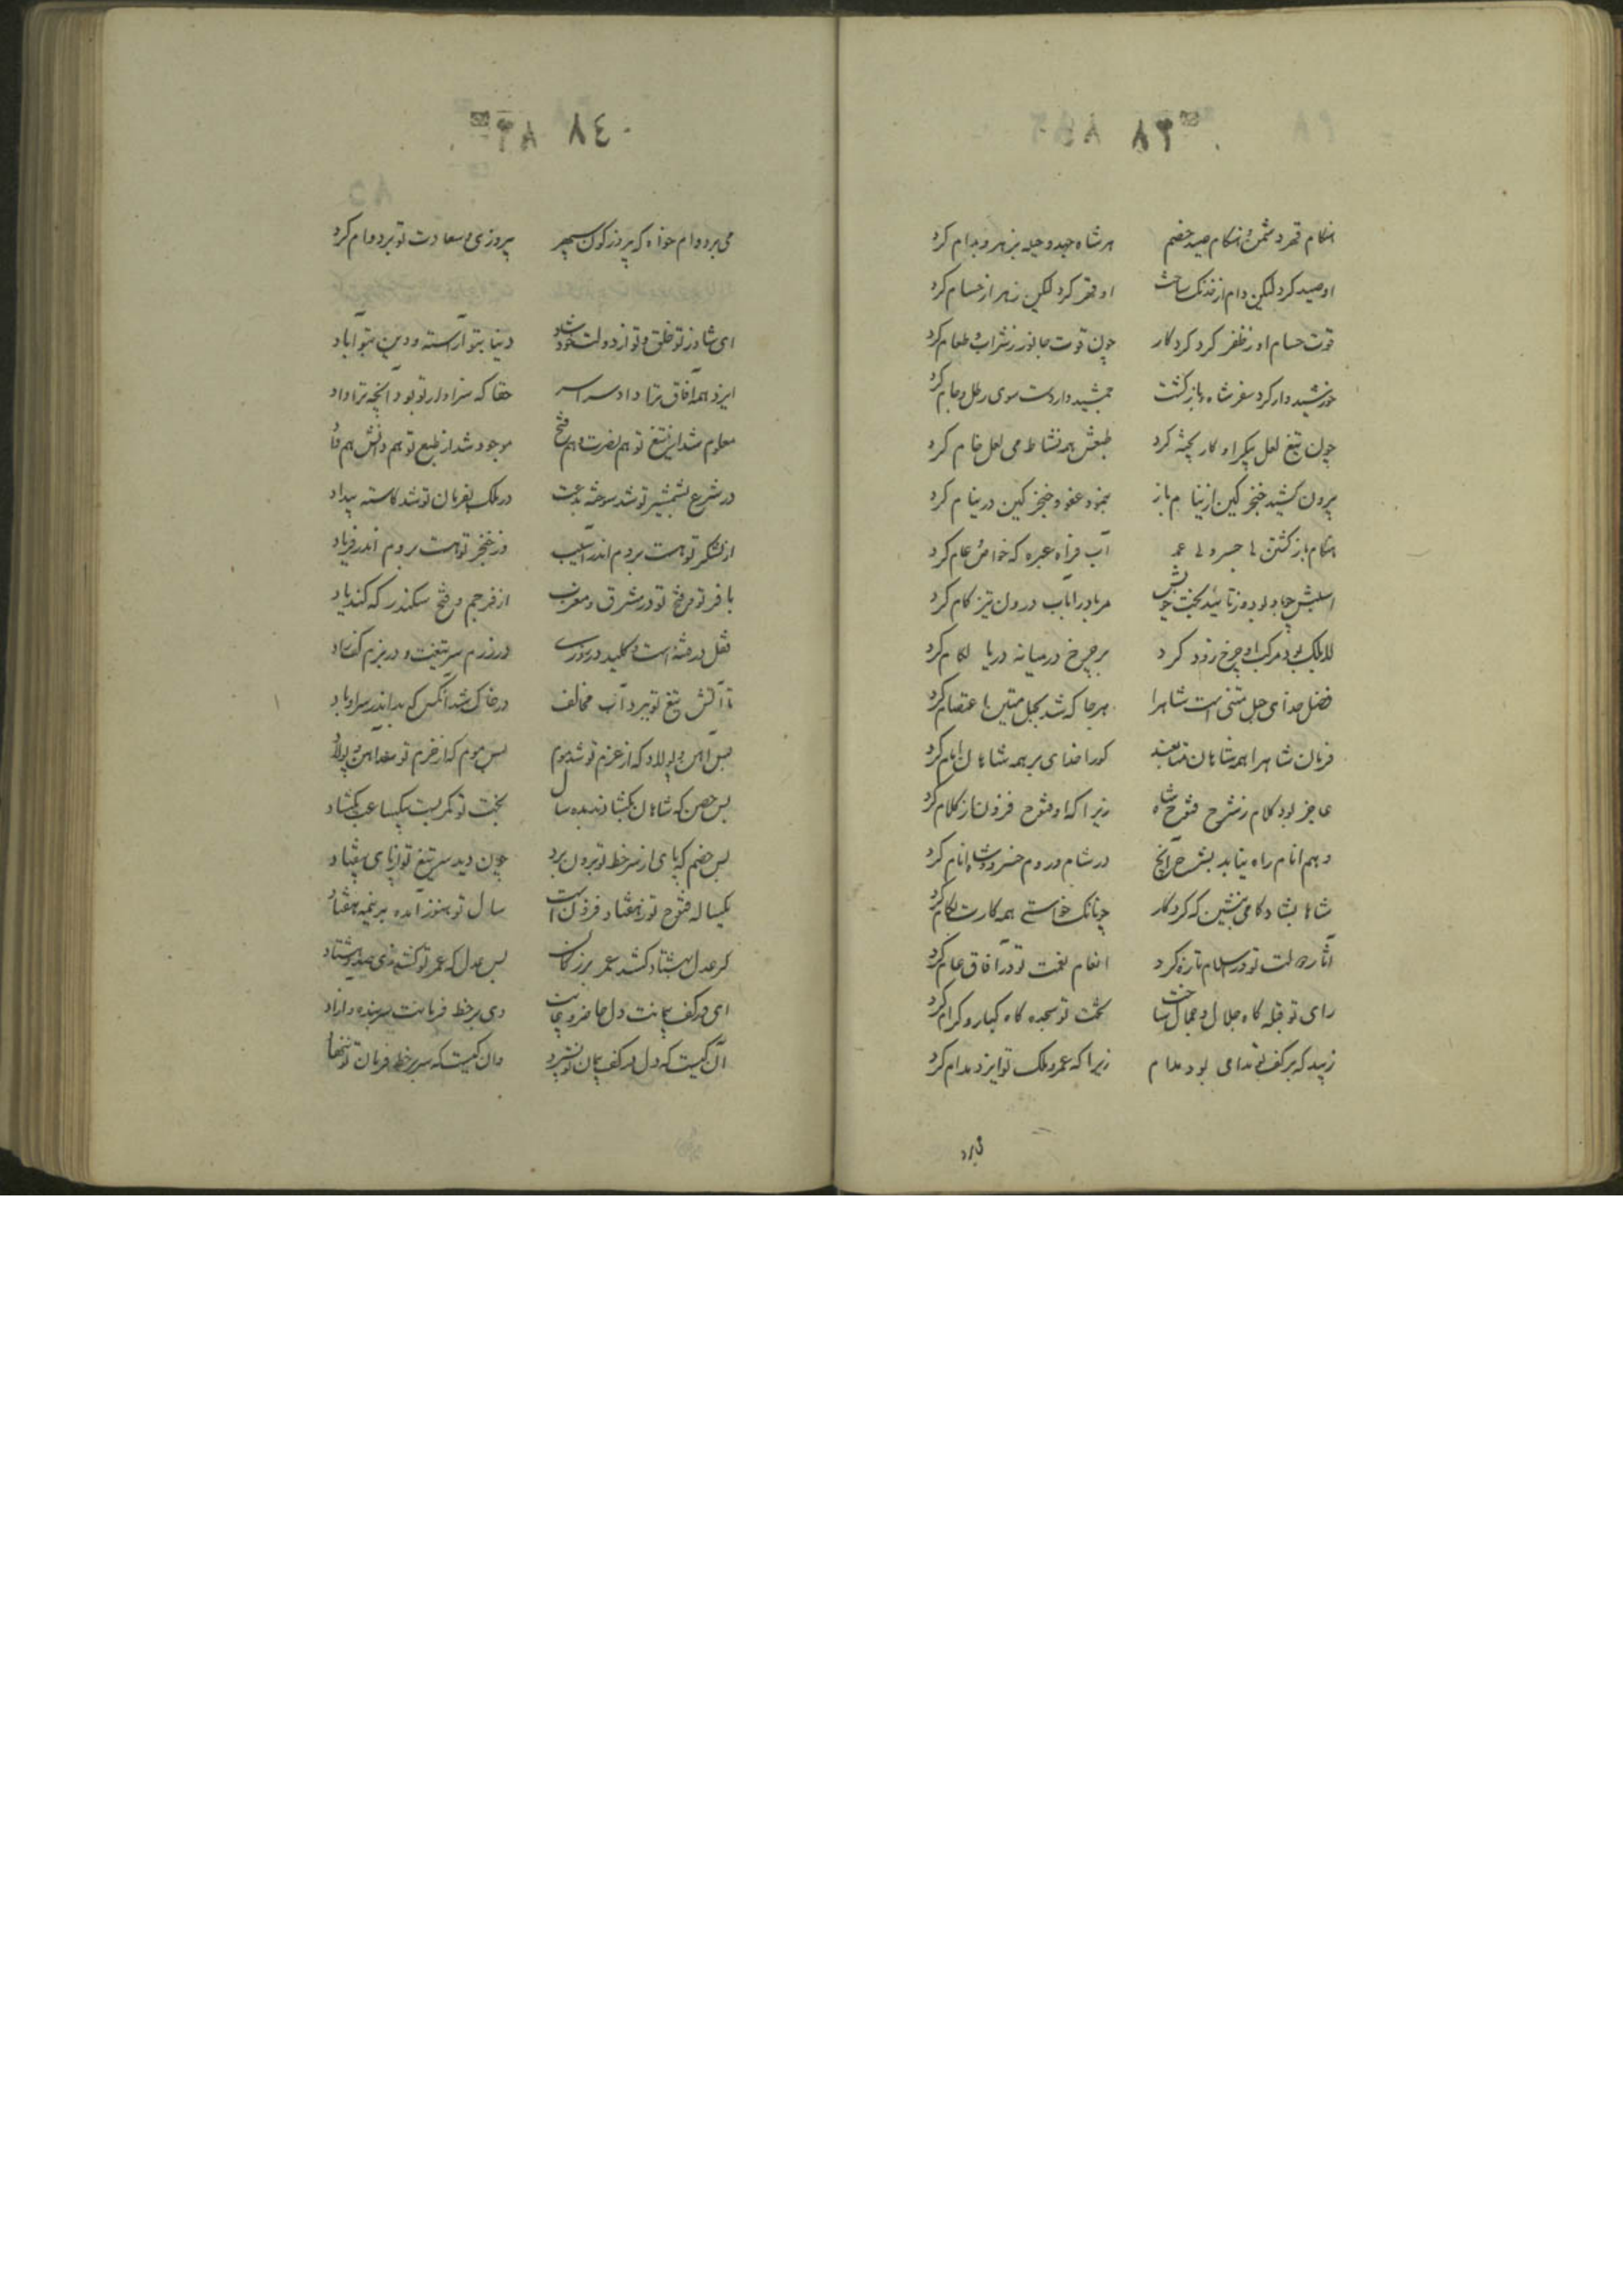 ٨٣
هنکام قهر دشمن و هنکام صید خصم هر شاه جهد و حیله بزهر و بدام کرد
او صید کرد لیکن دام از خدنک ساخت او قهر کرد لیکن زهر از حسام کرد
قوت حسام او ز ظفر کرد کردکار چون قوت جانور ز شراب و طعام کرد
خورشیدوار کرد سفر شاه و بازکشت جمشیدوار دست سوی رطل و جام کرد
چون تیغ لعل پیکر او کار پخته کرد طبعش همه نشاط می لعل خام کرد
بیرون کشید خنجر کین از نیام باز بنمود عفو و خنجر کین در نیام کرد
هنکام بازکشتن بی جسر و بی آب فراه عبره که خاص و عام کرد
اسبش چو باد بود و ز تائید بخت خویش مر باد را بآب درون تیزکام کرد
لابلکه بود مرکب او چرخ زود کرد بر چرخ در میانه دریا لکام کرد
فضل خدای حبل متین است شاه را هرجا که شد بحبل متین اعتصام کرد
فرمان شاه را همه شاهان متابعند کورا خدای بر همه شاهان امام کرد
عاجز بود کلام ز شرح فتوح شاه زیرا که او فتوح فزون از کلام کرد
وهم انام راه نیابد بشرح آنچ در شام و روم خسرو و شاه انام کرد
شاها بشادکامی بنشین که کردکار چنانک خواستی همه کارت بکام کرد
آثار دولت تو در اسلام تازه کرد انعام نعمت تو در آفاق عام کرد
رای تو قبله کاه جلال و جمال ساخت تخت تو سجده کاه کبار و کرام کرد
زیبد که بر کف تو مدامی بود مدام زیرا که عمر و ملک تو ایزد مدام کرد
٨٤
می بر دوام خواه که پیروزکون سپهر پیروزی و سعادت تو بر دوام کرد
ای شاد ز تو خلق و تو از دولت خود شاد دنیا بتو آراسته و دین بتو آباد
ایزد همه آفاق ترا داد سراسر حقا که سزاوار تو بود آنچه ترا داد
معلوم شد از تیغ تو هم نصرت و هم فتح موجود شد از طبع تو هم دانش و هم داد
در شرع بشمشیر تو شد سوخته بدعت در ملک بفرمان تو شد کاسته بیداد
از لشکر تو هست بروم اندر آسیب وز خنجر تو هست بروم اندر فریاد
با فر تو و فتح تو در مشرق و مغرب از فر جم و فتح سکندر که کند یاد
قفل در فتنه است و کلید در روزی در رزم سر تیغت و در بزم کف راد
تا آتش تیغ تو ببرد آب مخالف در خاک شد آنکس که بد اندر سر او باد
بس آهن و پولاد که از عزم تو شد موم بس موم که از حزم تو شد آهن و پولاد
بس حصن که شاهان نکشادند بده سال بخت تو کمر بست بیکساعت بکشاد
بس خصم که پای از سر خط تو برون برد چون دید سر تیغ تو از پای بیفتاد
یکساله فتوح تو ز هفتاد فزون است سال تو هنوز آمده بر نیمه هفتاد
کر عدل بهشتاد کشد عمر بزرکان بس عدل که عمر تو کشد زی صد و هشتاد
ای در کف پیمانت دل حاضر و غایب وی بر خط فرمانت سر بنده و آزاد
آن کیست که دل در کف پیمان تو نسپرد وان کیست که سر بر خط فرمان تو ننهاد